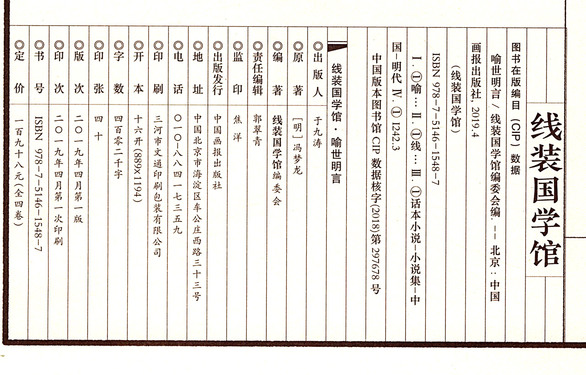 线装国学馆
图书在版编目（CIP）数据
喻世明言/线装国学馆编委会编.--北京：中国
画报出版社，2019.4
（线装国学馆）
ISBN 978-7-5146-1548-7
Ⅰ.①喻… Ⅱ.①线… Ⅲ.①话本小说-小说集-中
国-明代 Ⅳ.①I242.3
中国版本图书馆 CIP 数据核字(2018)第 297678 号
线装国学馆·喻世明言
◎出版人 于九涛
◎原著 [明] 冯梦龙
◎编著 线装国学馆编委会
◎责任编辑 郭翠青
◎监印 焦洋
◎出版发行 中国画报出版社
◎地址 中国北京市海淀区车公庄西路三十三号
◎电话 〇一〇-八八四一七三五九
◎印刷 三河市文通印刷包装有限公司
◎开本 十六开(889x1194)
◎字数 四百零二千字
◎印张 四十
◎版次 二〇一九年四月第一版
◎印次 二〇一九年四月第一次印刷
◎书号 ISBN 978-7-5146-1548-7
◎定价 一百九十八元(全四卷)